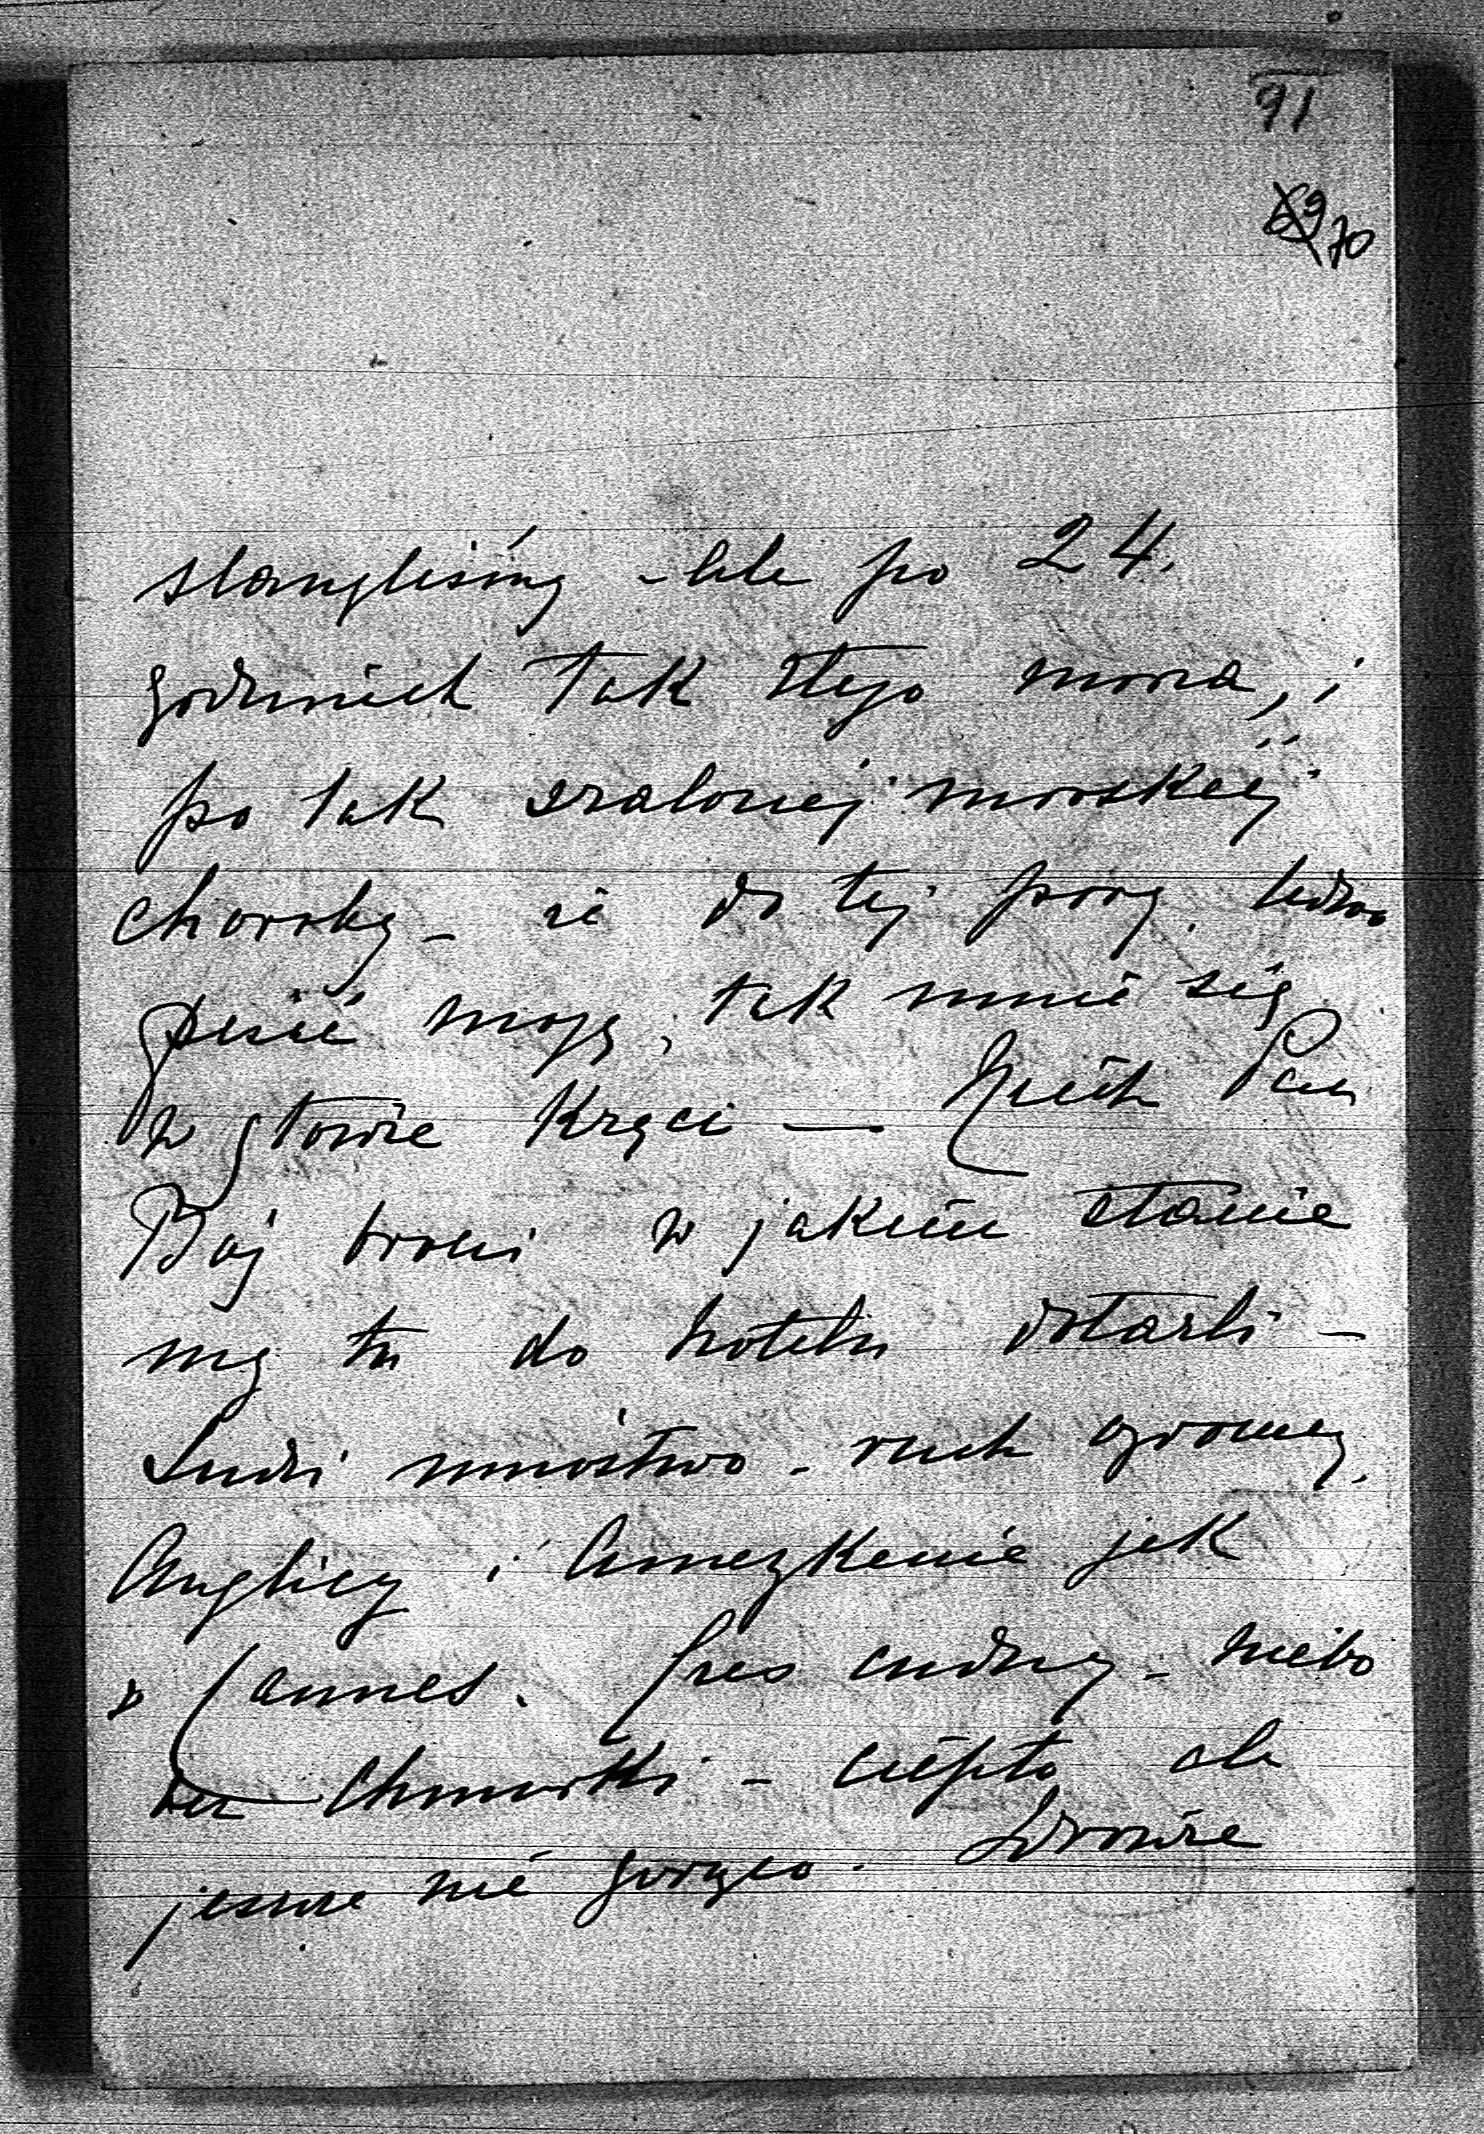 91
69 70
stanęliśmy - ale po 24.
godzinach tak złego morza, i
po tak szalonej morskiej
choroby - że do tej pory ledwo
pisać mogę, tak mnie się
w głowie kręci — Niech Pan
Bój broni w jakiem stanie
my tu do hotelu dotarli -
Ludzi mnóstwo - ruch ogromny.
Anglicy i Amerykanie jak
w Cannes. Czas cudny - niebo
bez chmurki - ciepło ale
jeszcze nie gorąco. Zdrowie